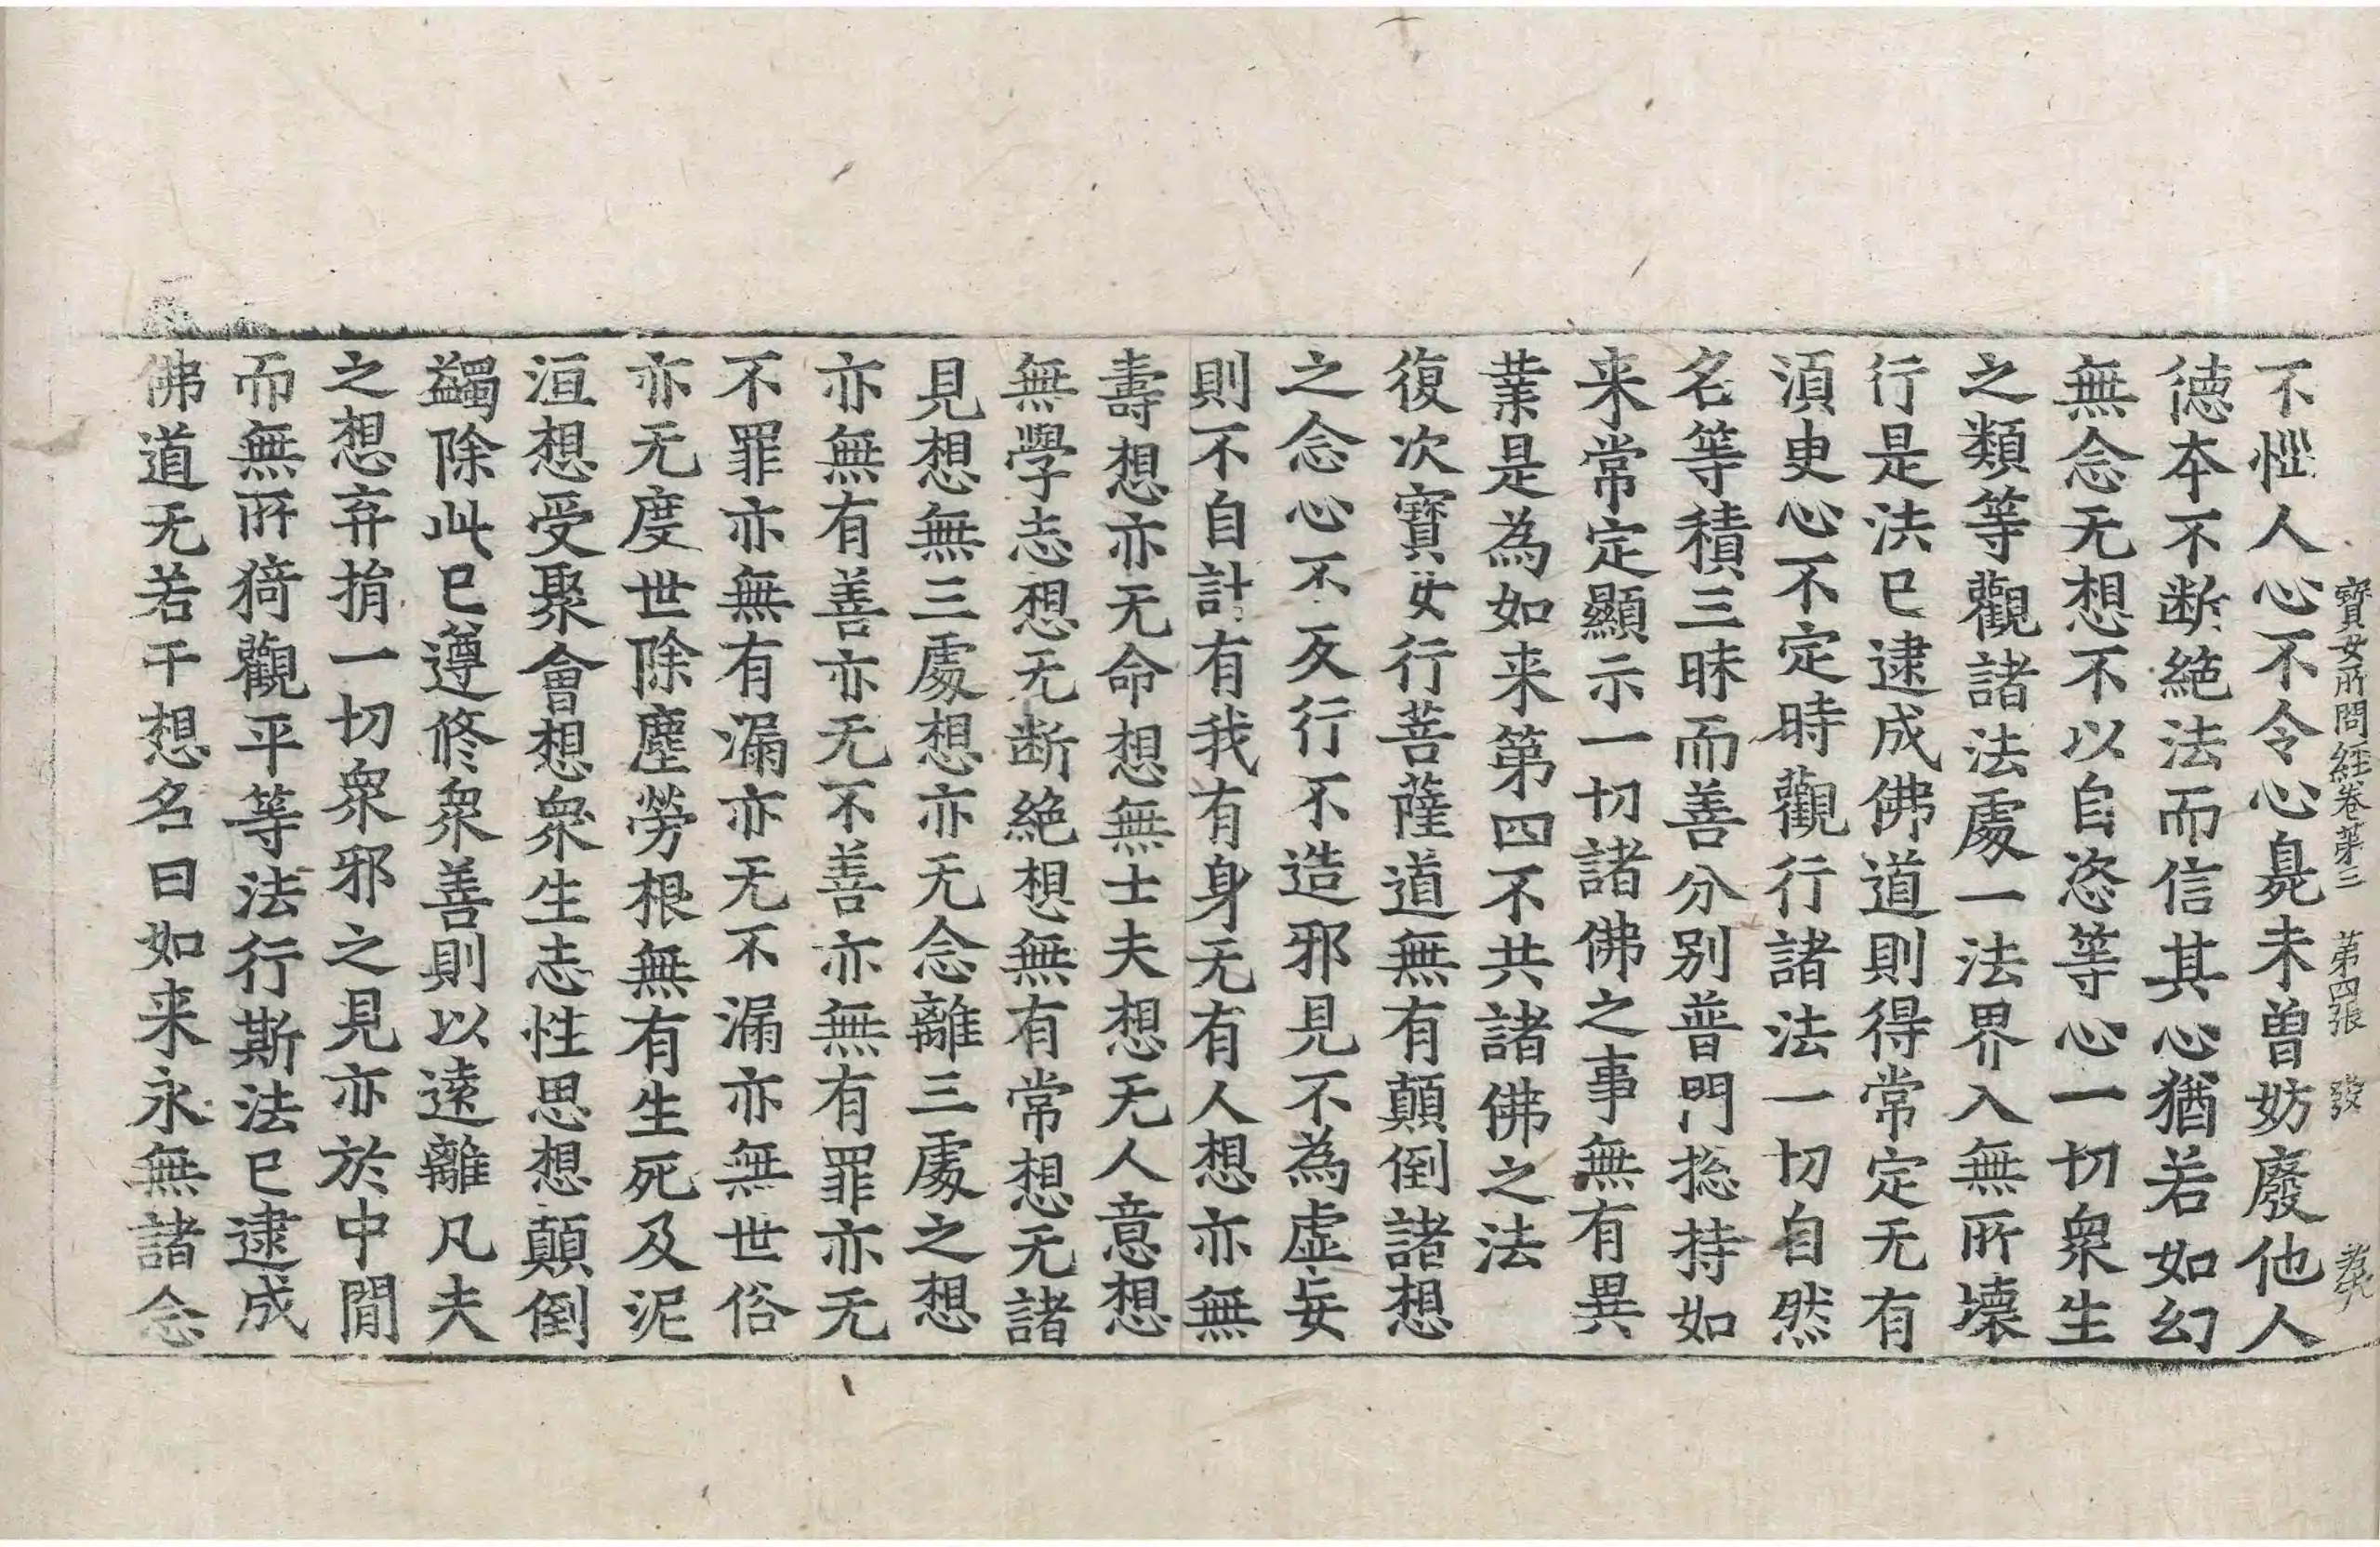 寶女所問經卷第三 第四張 發
不憆人心不令心毳未曾妨廢他人
德本不断絶法而信其心猶若如幻
無念无想不以自恣等心一切衆生
之類等觀諸法處一法界入無所壞
行是法已逮成佛道則得常定无有
須臾心不定時觀行諸法一切自然
名等積三昧而善分别普門捴持如
来常定顯示一切諸佛之事無有異
業是為如来第四不共諸佛之法
復次寶女行菩薩道無有顛倒諸想
之念心不反行不造邪見不為虛妄
則不自計有我有身无有人想亦無
壽想亦无命想無士夫想无人意想
無學志想无断絶想無有常想无諸
見想無三處想亦无念離三處之想
亦無有善亦无不善亦無有罪亦无
不罪亦無有漏亦无不漏亦無世俗
亦无度世除塵勞根無有生死及泥
洹想受聚會想衆生志性思想顛倒
蠲除此已遵修衆善則以遠離凡夫
之想弃捐一切衆邪之見亦於中間
而無所猗觀平等法行斯法已逮成
佛道无若干想名曰如来永無諸念